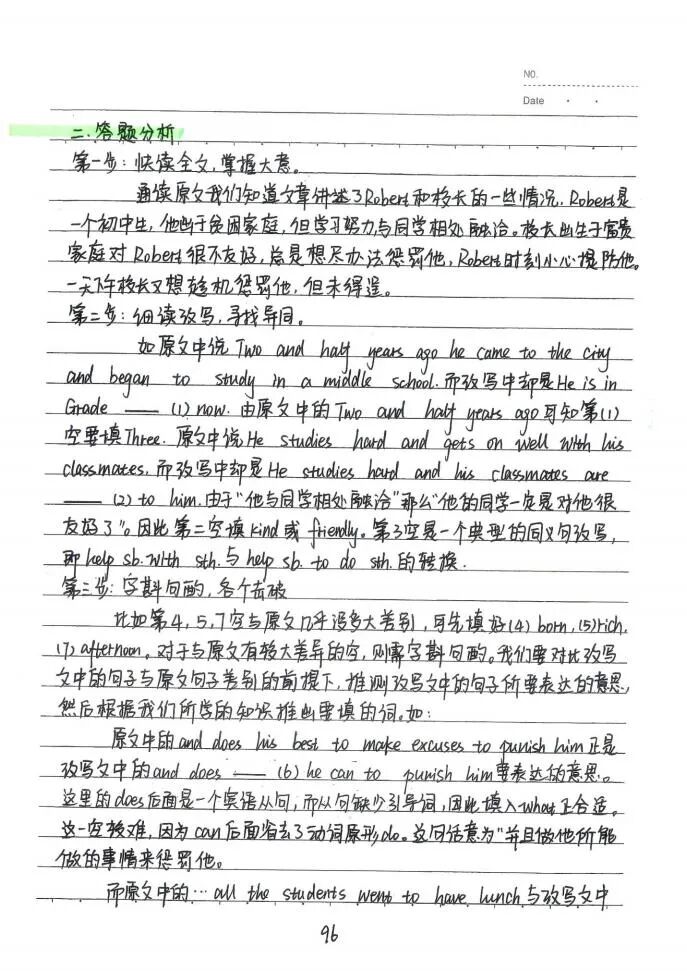 NO.
Date
二.答题分析
第一步：快读全文，掌握大意。
通读原文我们知道文章讲述了Robert和校长的一些情况，Robert是
一个初中生，他出于贫困家庭，但学习努力与同学相处融洽。校长出生于富贵
家庭对Robert很不友好，总是想尽办法惩罚他，Robert时刻小心提防他。
一天下午校长又想趁机惩罚他，但未得逞。
第二步：细读改写，寻找异同。
如原文中说Two and half years ago he came to the city
and began to study in a middle school.而改写中却是He is in
Grade —— (1) now. 由原文中的Two and half years ago可知第(1)
空要填Three. 原文中说He studies hard and gets on well with his
classmates，而改写中却是He studies hard and his classmates are
—— (2) to him.由于"他与同学相处融洽"那么"他的同学一定是对他很
友好了"。因此第二空填kind或friendly。第3空是一个典型的同义句改写，
即help sb. with sth.与help sb. to do sth.的转换.
第三步：字斟句酌，各个击破
比如第4,5,7空与原文几乎没多大差别，可先填好(4) born, (5)rich,
(7) afternoon。对于与原文有较大差异的空，则需字斟句酌。我们要对比改写
文中的句子与原文句子差别的前提下，推测改写文中的句子所要表达的意思，
然后根据我们所学的知识推出要填的词。如：
原文中的and does his best to make excuses to punish him正是
改写文中的and does —— (6) he can to punish him要表达的意思。
这里的does后面是一个宾语从句，而从句缺少引导词，因此填入what正合适。
这一空较难，因为can后面省去了动词原形do。这句话意为"并且做他所能
做的事情来惩罚他。
而原文中的…all the students went to have lunch与改写文中
96